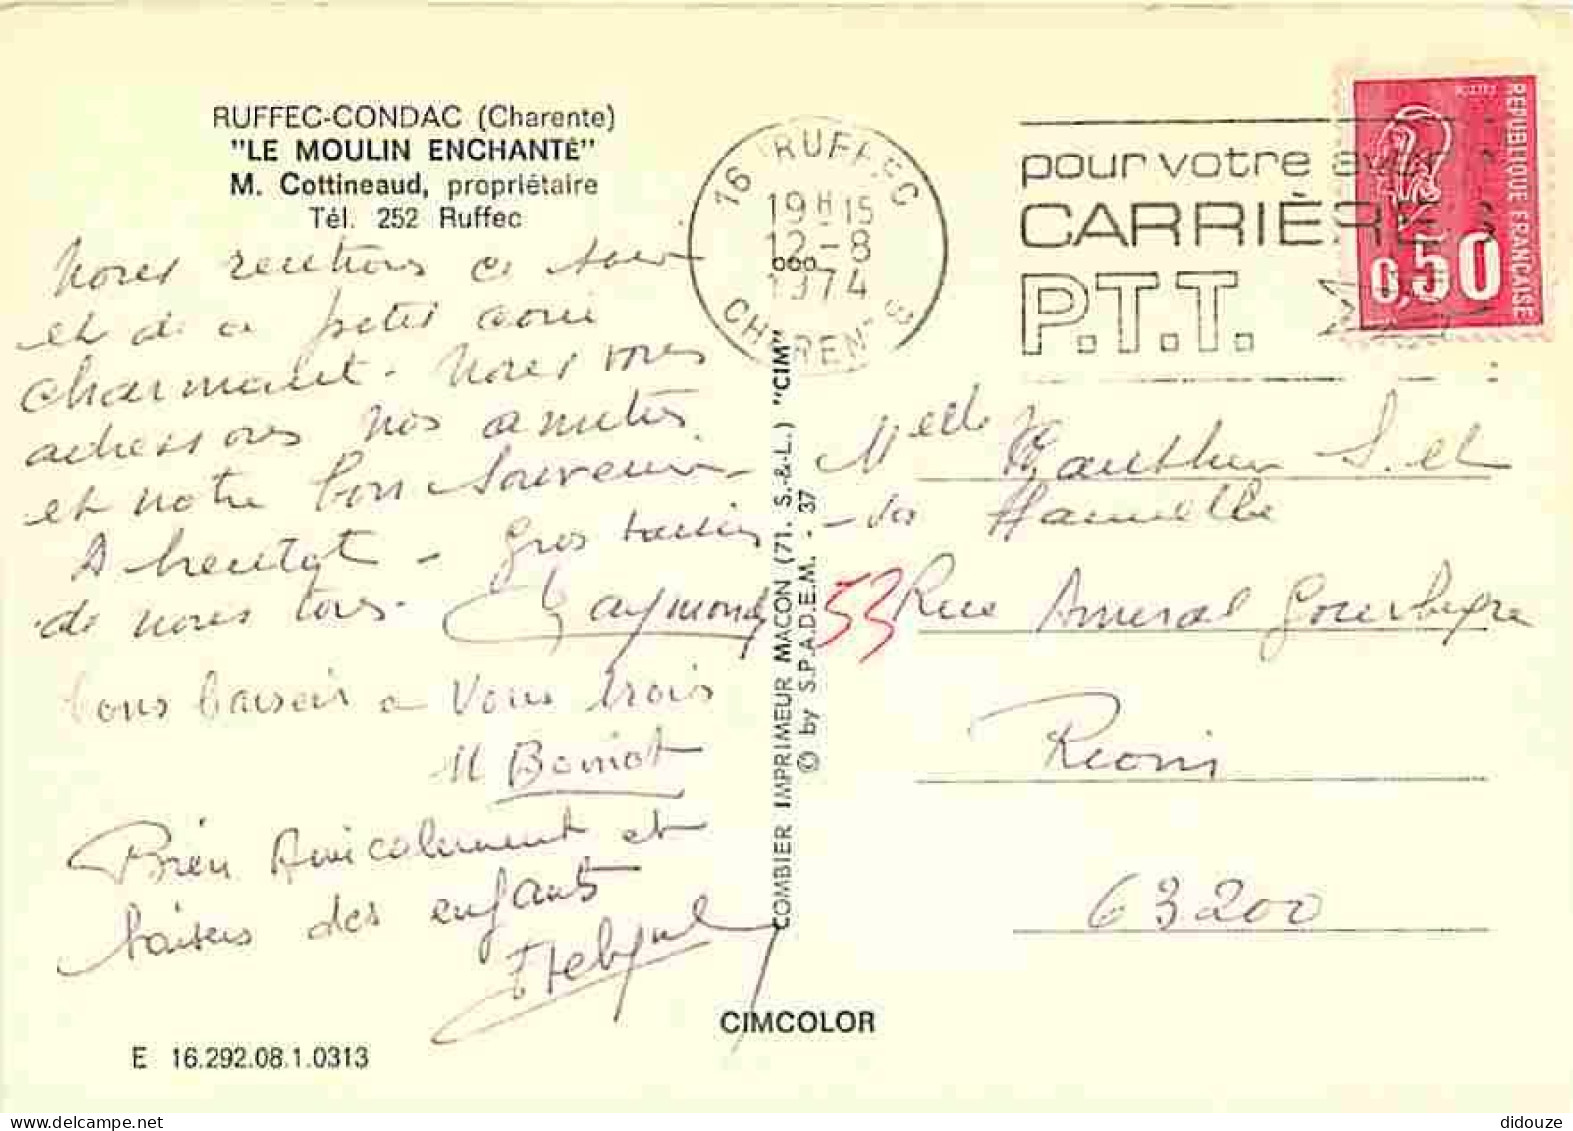 RUFFEC-CONDAC (Charente)
"LE MOULIN ENCHANTÉ"
M. Cottineaud, propriétaire
Tél. 252 Ruffec
Nous rentrons ce soir
et de ce petit coin
charmant. Nous vous
adressons nos amitiés
et notre bon souvenir
A bientot - Gros baisers
de nous tous. Raymonde
bons baisers a Vous trois
M Boinot
Bien Amicalement et
baisers des enfants
16 RUFFEC
19H15
12-8
1974
CHARENTE
pour votre avenir
CARRIÈRE
P.T.T.
REPUBLIQUE FRANÇAISE
0,50
COMBIER IMPRIMEUR MACON (71. S.-&-L.) "CIM"
© by S.P.A.D.E.M. - 37
Melle Gauthier S. et
53 Rue Amiral Gourbeyre
Riom
63200
CIMCOLOR
E 16.292.08.1.0313
didouze